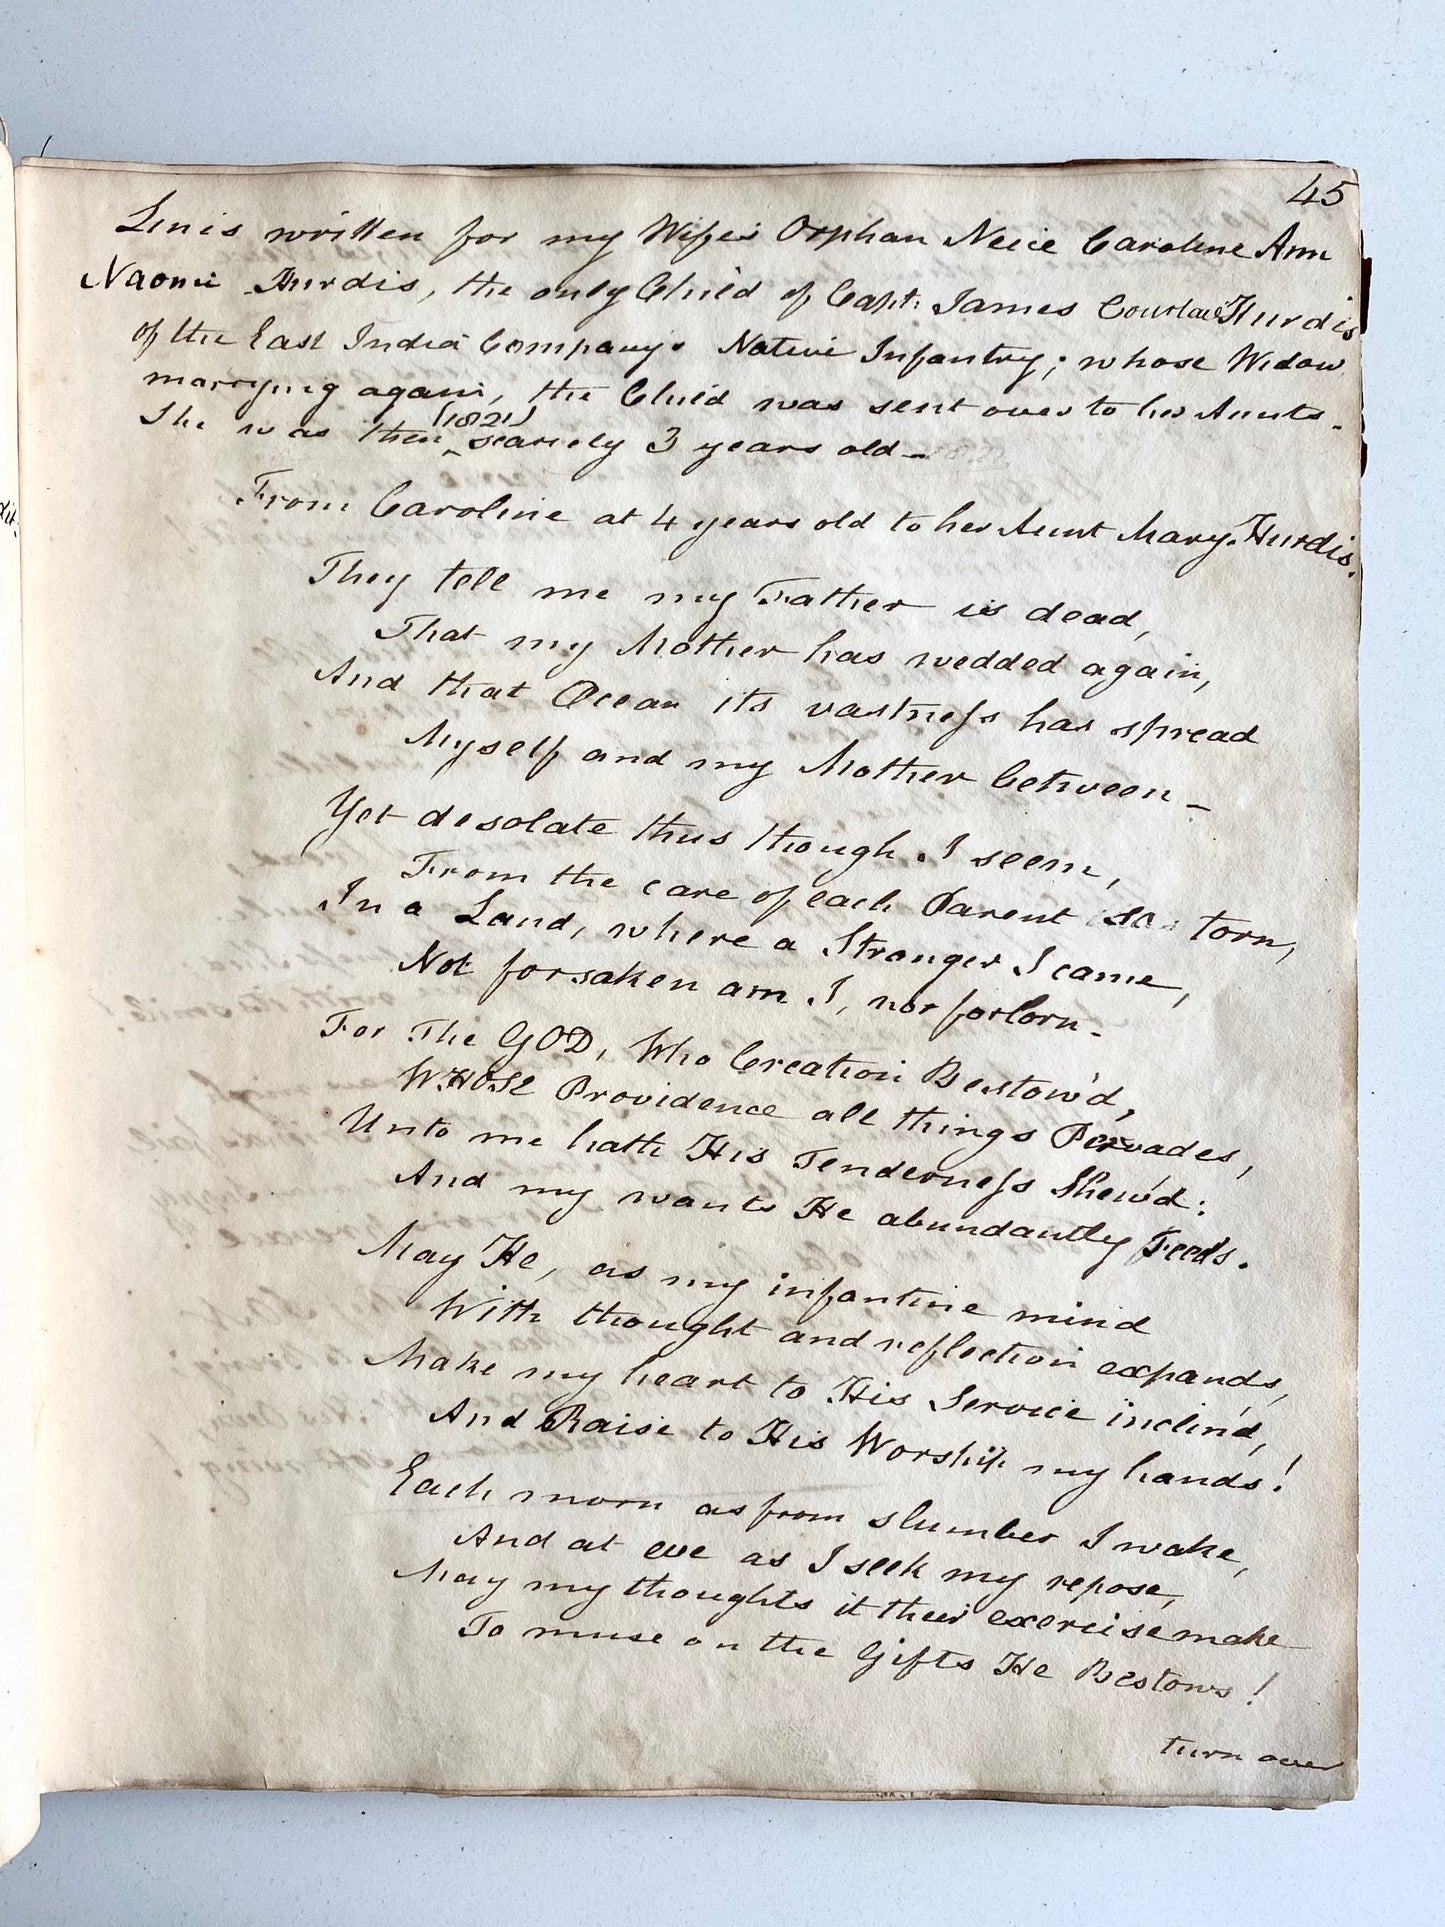 45
Lines written for my Wife's Orphan Neice Caroline Ann
Naomi Hurdis, the only Child of Capt. James Courtail Hurdis
of the East India Company's Native Infantry; whose Widow
marrying again, the Child was sent over to her Aunts.
(1821)
She was then ^ scarcely 3 years old –
From Caroline at 4 years old to her Aunt Mary Hurdis.
They tell me my Father is dead,
That my Mother has wedded again,
And that Ocean its vastness has spread
Myself and my Mother between –
Yet desolate thus though I seem,
From the care of each Parent so torn,
In a Land, where a Stranger I came,
Not forsaken am I, nor forlorn –
For The GOD, Who Creation Bestow'd,
WHOSE Providence all things Pervades,
Unto me hath His Tenderness Shew'd:
And my wants He abundantly Feeds.
May He, as my infantine mind
With thought and reflection expands,
Make my heart to His Service inclin'd,
And Raise to His Worship my hands!
Each morn as from slumber I wake,
And at eve as I seek my repose,
May my thoughts it their exercise make
To muse on the Gifts He Bestows!
turn over